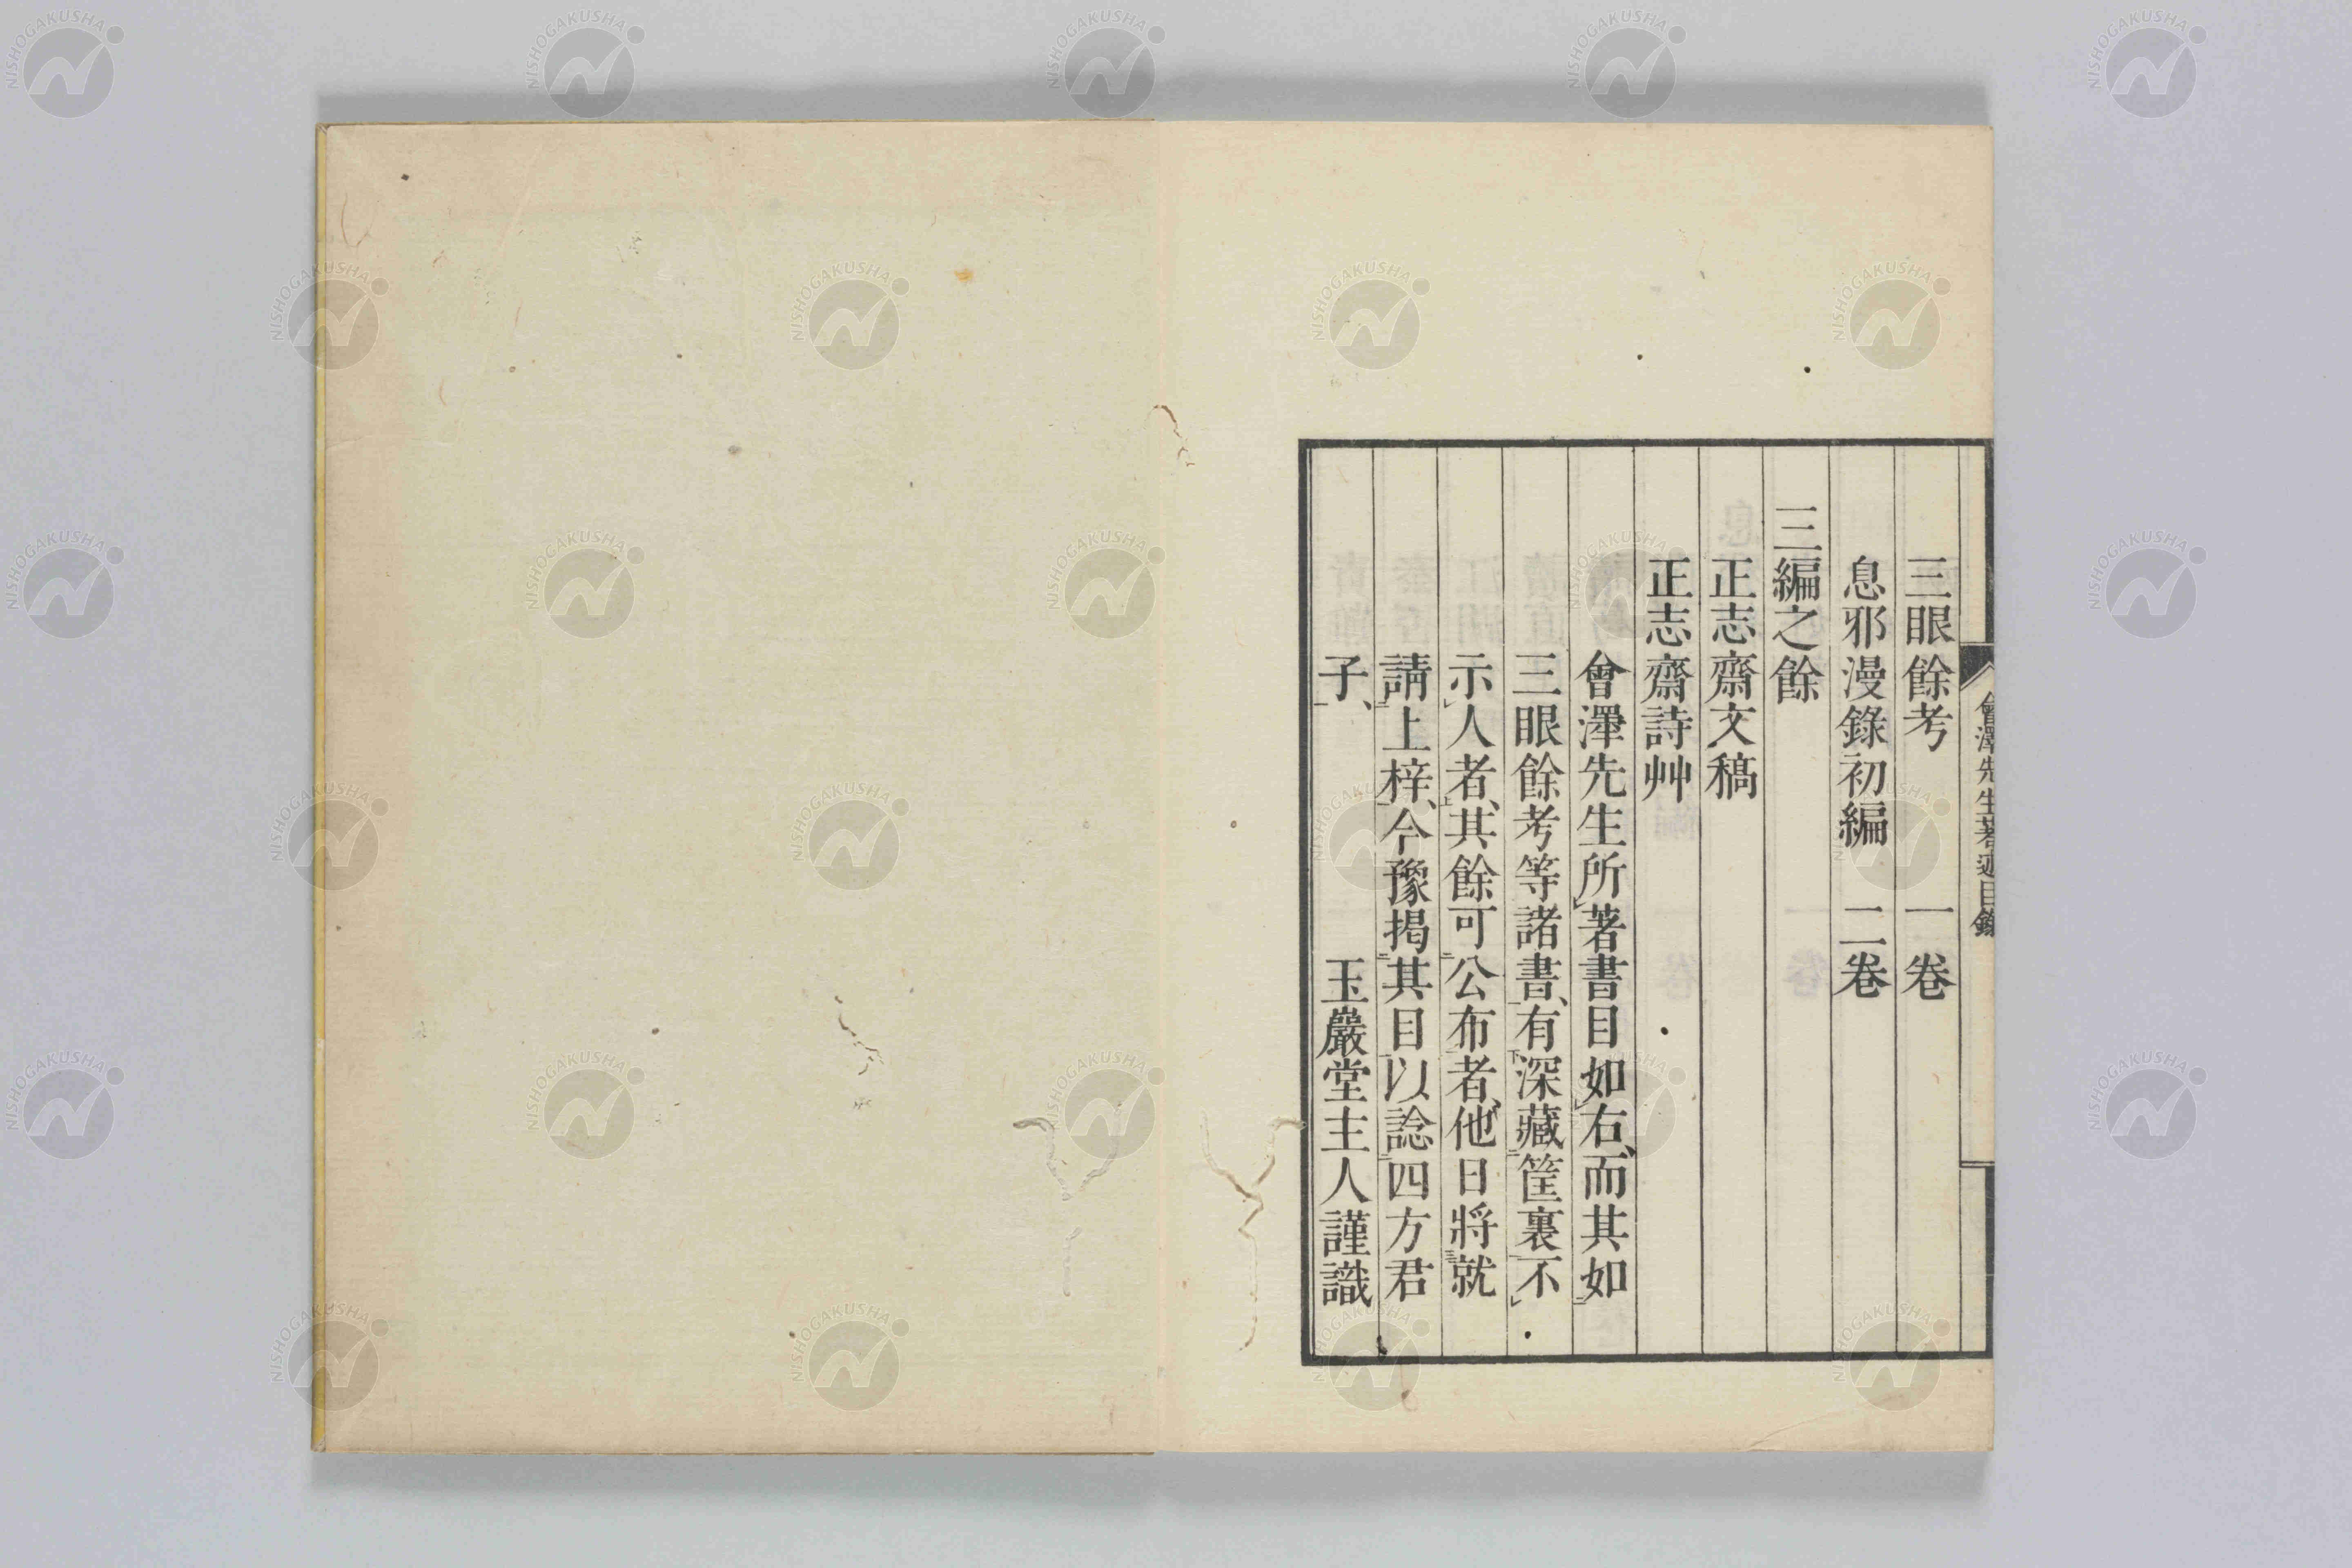 會澤先生著述目錄
三眼餘考　一卷
息邪漫錄初編　二卷
三編之餘
正志齋文稿
正志齋詩艸
會澤先生所著書目如右、而其如
三眼餘考等諸書、有深藏筐裏不
示人者、其餘可公布者、他日將就
請上梓、今豫揭其目以諗四方君
子、　玉巖堂主人謹識
NISHOGAKUSHA